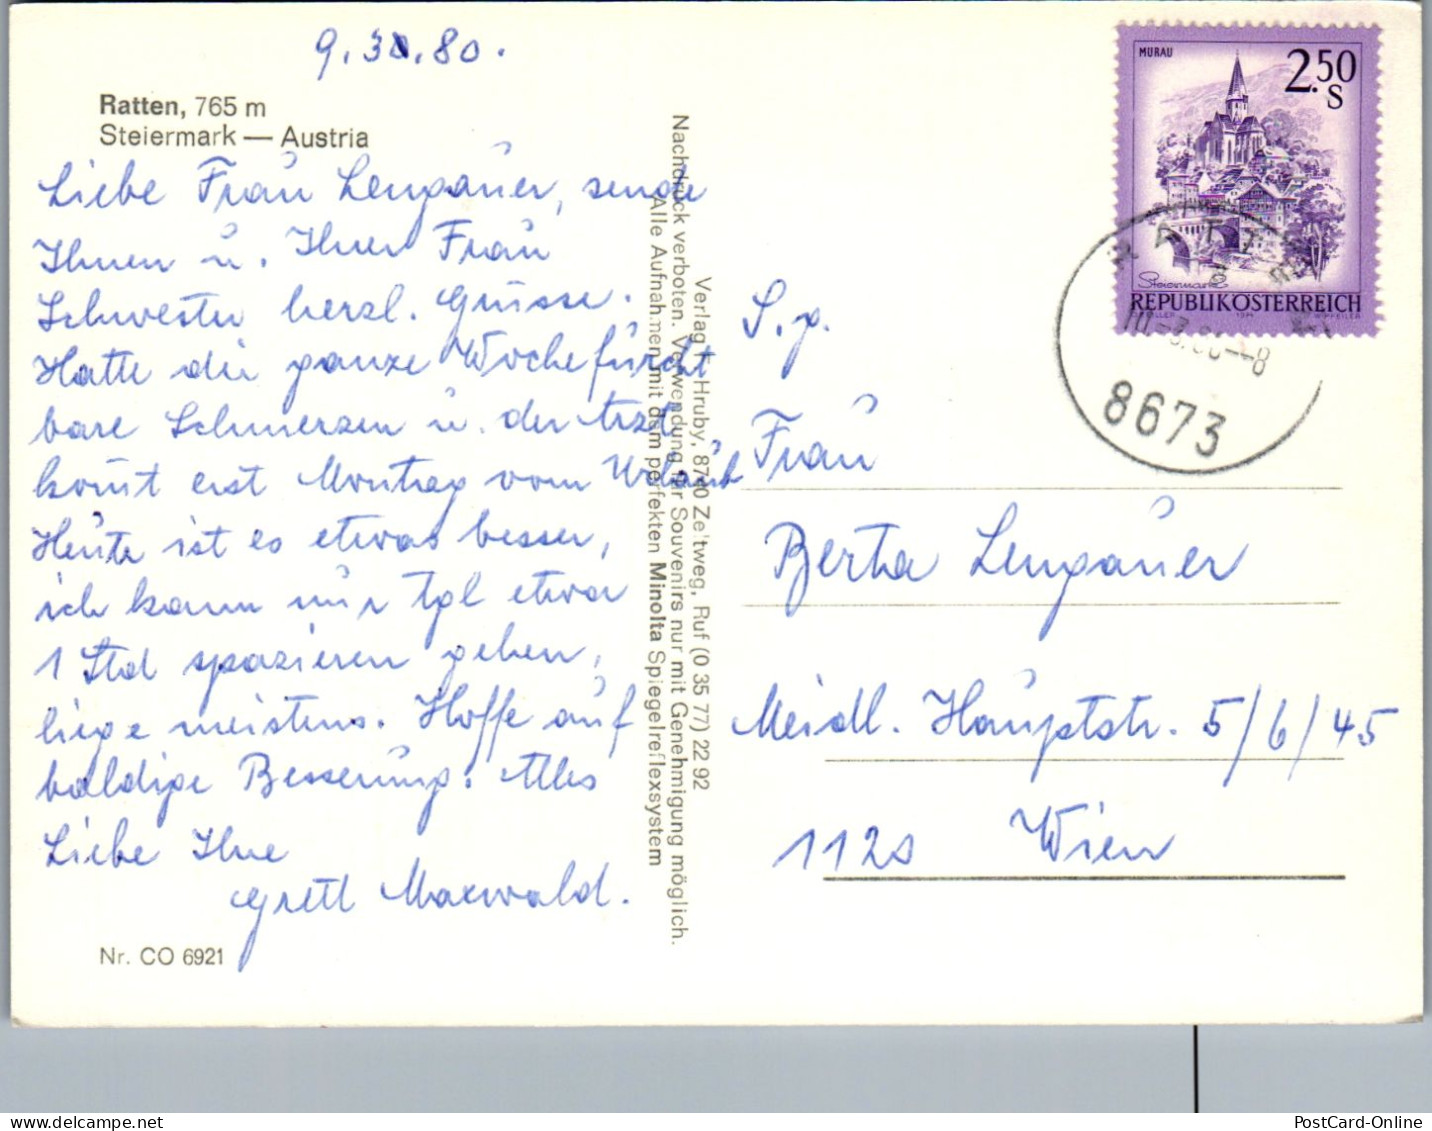 9.3.80.
Ratten, 765 m
Steiermark — Austria
Liebe Frau Lengauer, sende
Ihnen u. Ihrer Frau
Schwester herzl. Grüsse.
Hatte die ganze Woche furcht
bare Schmerzen u. der Arzt
komt erst Montag vom Urlaub
Heute ist es etwas besser,
ich kann nur tgl etwa
1 Std spazieren gehen,
liege meistens. Hoffe auf
baldige Besserung. Alles
Liebe Ihre
Gretl Maxwald.
Nr. CO 6921
Verlag F. Hruby, 8740 Zeltweg, Ruf (0 35 77) 22 92
Nachdruck verboten. Verwendung für Souvenirs nur mit Genehmigung möglich.
Alle Aufnahmen mit dem perfekten Minolta Spiegelreflexsystem
MURAU
2.50
S
Steiermark
REPUBLIK ÖSTERREICH
8673
S. g.
Frau
Berta Lengauer
Meidl. Hauptstr. 5/6/45
1120 Wien
PostCard-Online